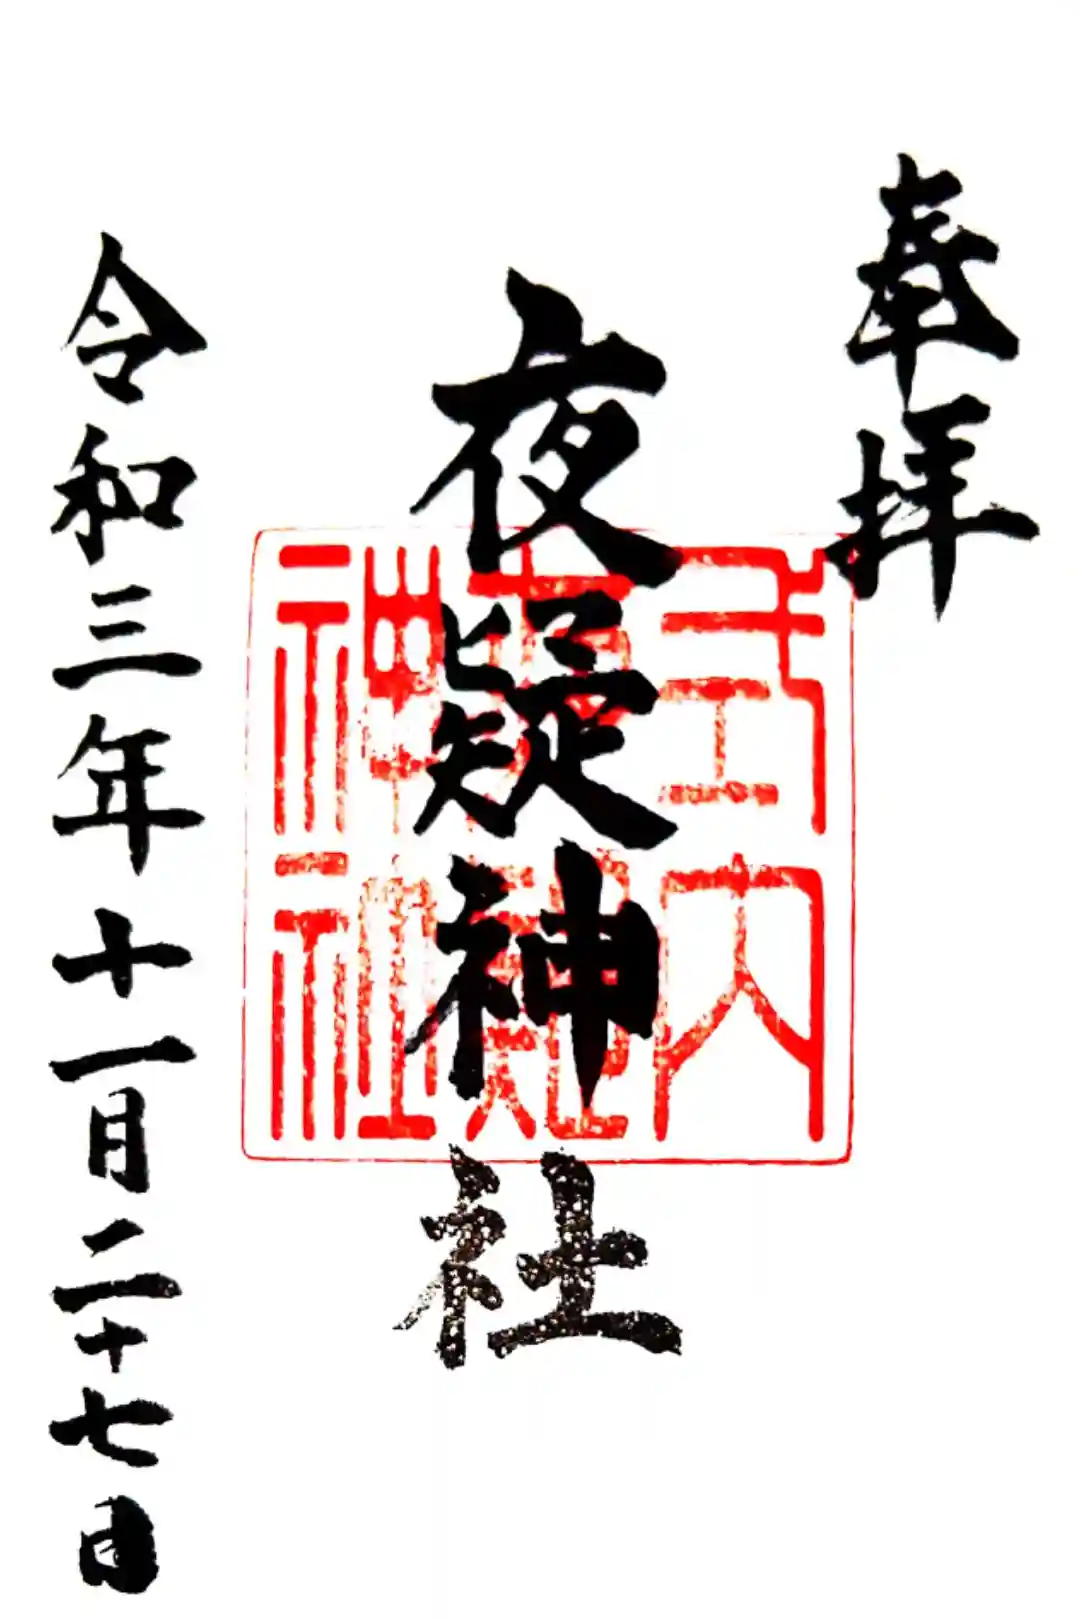 奉拝
夜疑神社
令和三年十一月二十七日
式内
夜疑
神社